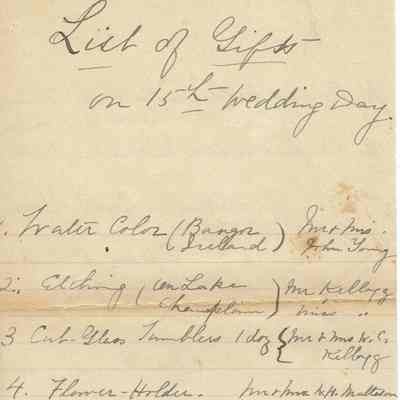 List of Gifts
on 15th Wedding Day.
1. Water Color (Bangor Ireland) Mr & Mrs. John Young
2. Etching (on Lake Champlain) Mr Kellogg Miss "
3 Cut-Glass Tumblers 1 doz { Mr & Mrs W. C. Kellogg
4. Flower-Holder. Mr & Mrs N. H. Matteson